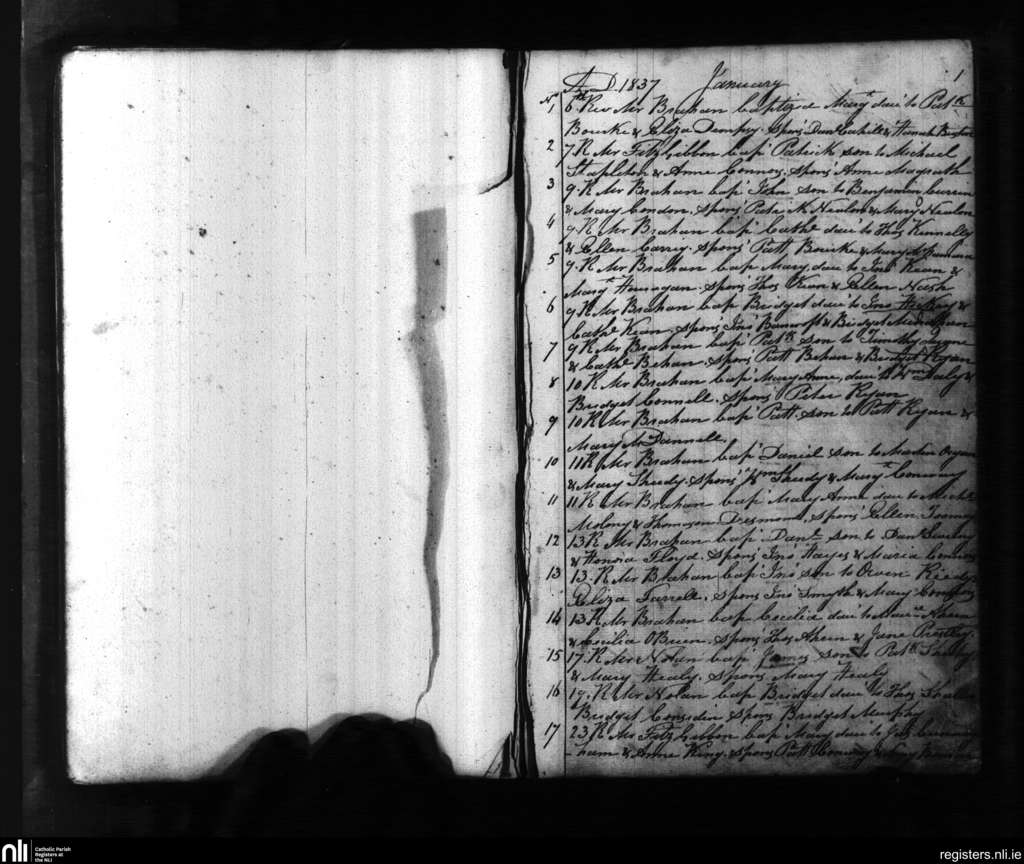 AD 1837 January 1
No
1 6th Rev Mr Brahan baptized Mary dau' to Patk
Bourke & Eliza Dempsy. Spons' Danl Cahill & Hanah
2 7 R Mr FitzGibbon bap' Patrick son to Michael
Stapleton & Anne Connors. Spons' Anne Magrath
3 9. R Mr Brahan bap' John son to Benjamin
& Mary Condon. Spons' Patrick Nealon & Mary Nealon
4 9. R Mr Brahan bap' Cathe dau' to Thos Kennelly
& Ellen Carrig. Spons' Patt Bourke & Mary
5 9. R Mr Brahan bap' Mary dau' to Jno Kean &
Margt Hanragan. Spons' Thos Kean & Ellen Nash
6 9 R Mr Brahan bap' Bridget dau' to Jno Hickey &
Cathe Kean. Spons' Jno & Bridget
7 9 R Mr Brahan bap' Patk son to Timothy
& Cathe Behan. Spons' Patt Behan & Bridget Ryan
8 10 R Mr Brahan bap' Mary Anne dau' to Wm Daly &
Bridget Connell. Spons' Peter Ryan
9 10 R Mr Brahan bap' Patt son to Patt Ryan &
Mary McDonnell.
10 11 R Mr Brahan bap' Daniel son to
& Mary Sheedy. Spons' Wm Sheedy & Margt Conway
11 11 R Mr Brahan bap' Mary Anne dau' to Michl
Molony & Thomasin Desmond. Spons' Ellen
12 13 R Mr Brahan bap' Danl son to Danl
& Honora Floyd. Spons' Jno Hayes & Maria
13 13. R Mr Brahan bap' Jno son to Owen
Eliza Farrell. Spons' Jno Smyth & Mary
14 13 R Mr Brahan bap' Cecilia dau' to Ahern
& Cecilia OBrien. Spons' Thos Ahern & Jane
15 17. R Mr Nolan bap' James son to Patk
& Mary Healy. Spons' Mary Healy
16 19. R Mr Nolan bap' Bridget dau' to Thos
Bridget Considin Spons' Bridget Murphy
17 23. R Mr FitzGibbon bap' Mary dau' to Jas
ham & Anne King. Spons' Patt
nli Catholic Parish
Registers at
the NLI
registers.nli.ie